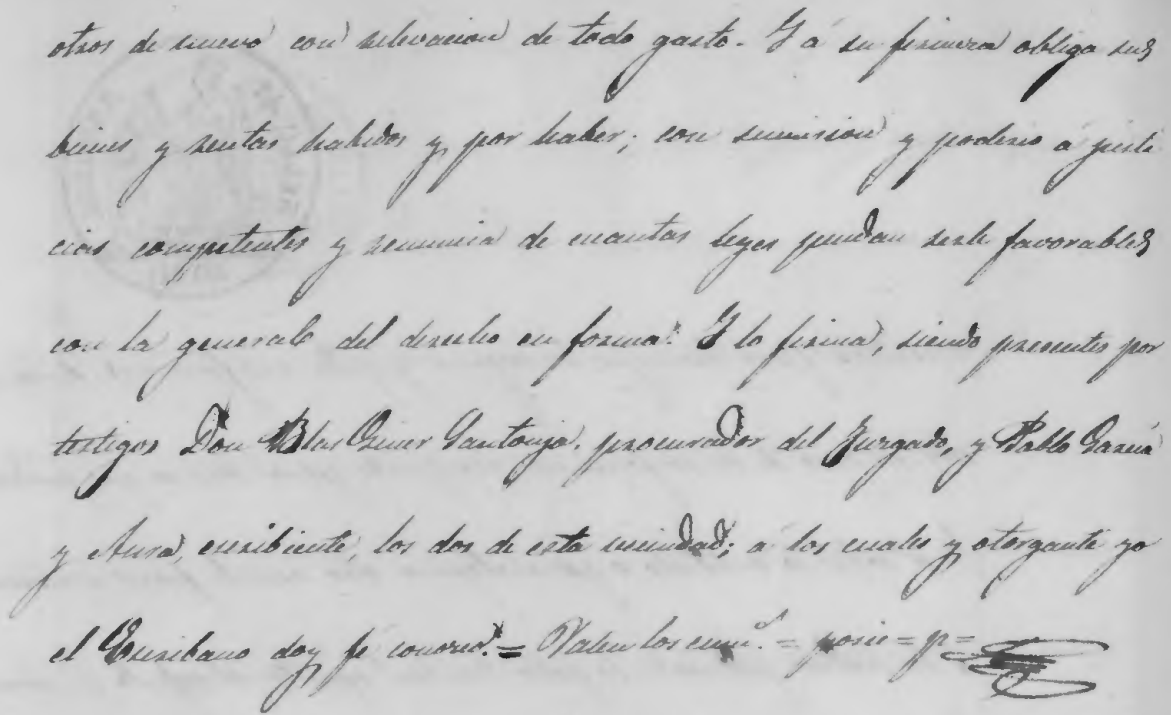 otros de nuevo con relevacion de todo gasto. Y á su firmeza obliga sus
bienes y rentas habidos y por haber; con sumision y poderio á justi
cias competentes y renuncia de cuantas leyes puedan serle favorables
con la general del derecho en forma. Y lo firma, siendo presentes por
testigos Don Blas Giner Santonja, procurador del Juzgado, y Pablo Garcia
y Aura, escribiente, los dos de esta vecindad; á los cuales y otorgante yo
el Escribano doy fé conozco. = Valen los enm.ᵈ = = p =